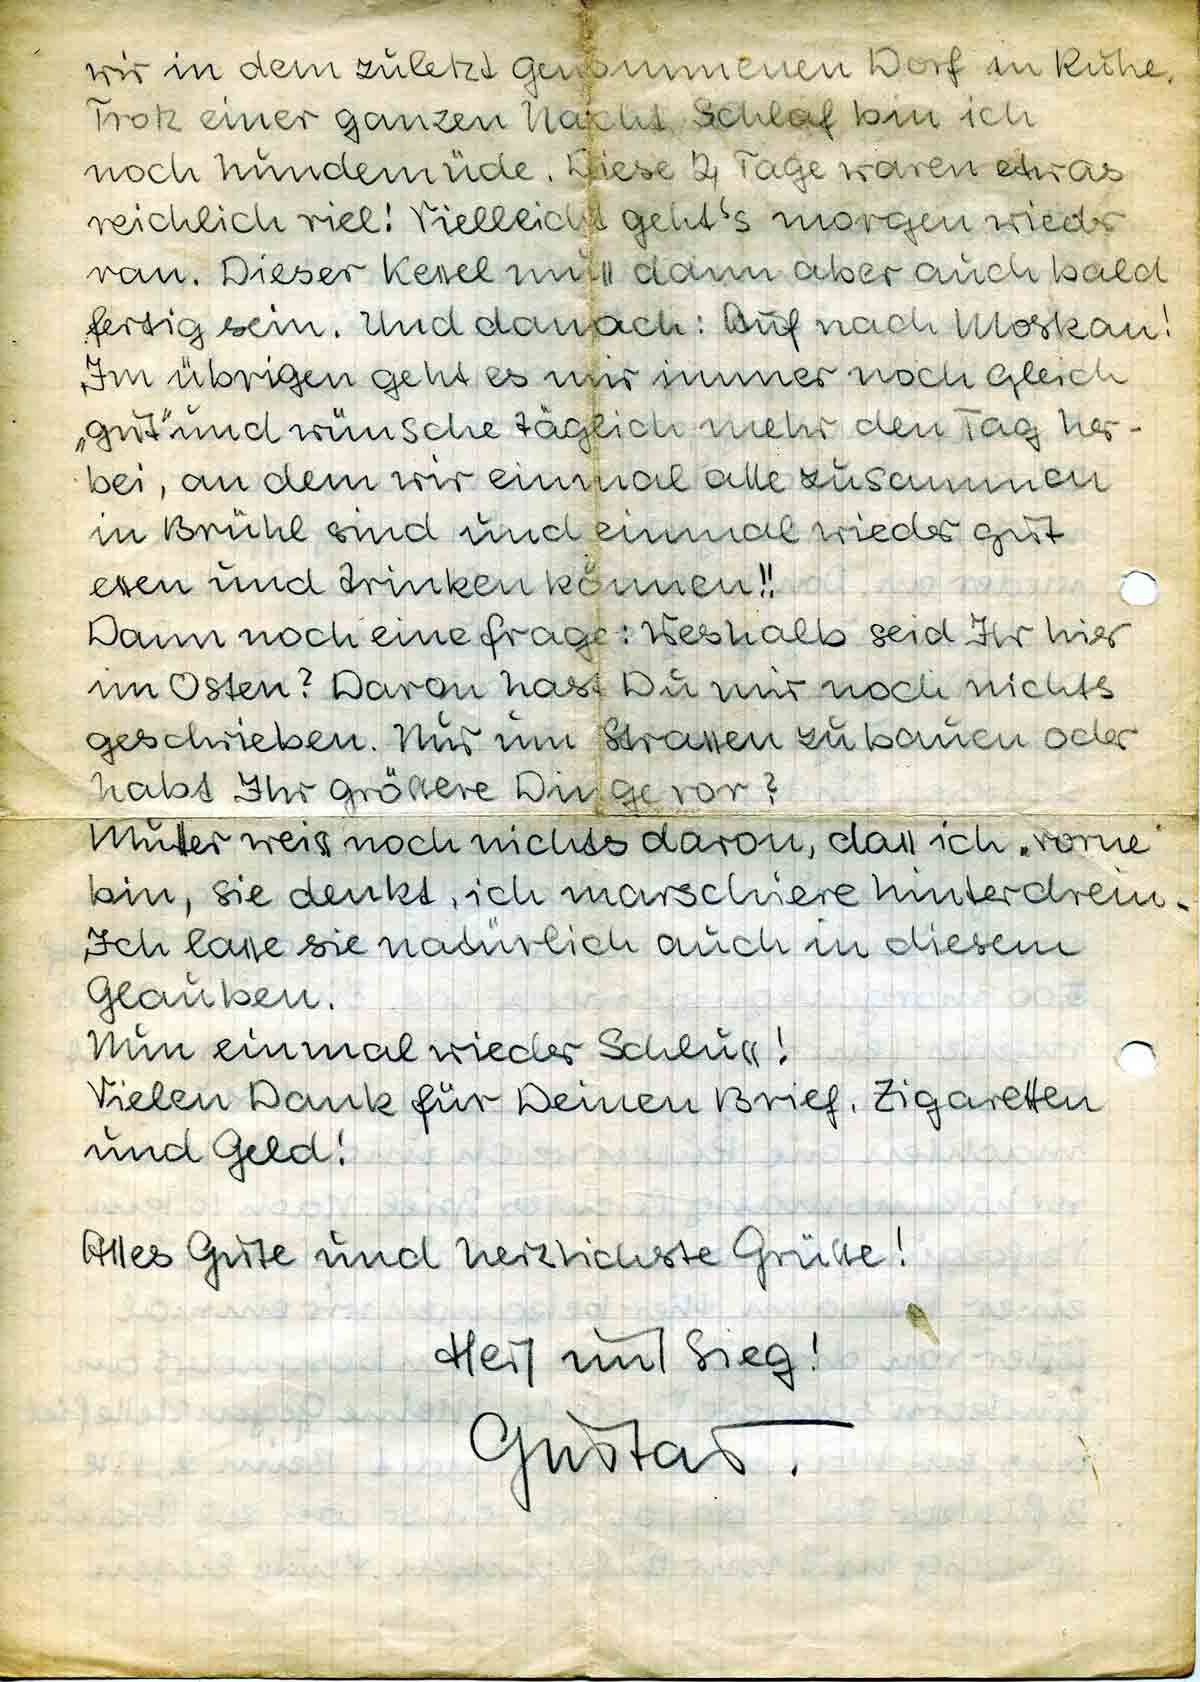 wir in dem zuletzt genommenen Dorf in Ruhe.
Trotz einer ganzen Nacht Schlaf bin ich
noch hundemüde. Diese 4 Tage waren etwas
reichlich viel! Vielleicht geht's morgen wieder
ran. Dieser Kessel muss dann aber auch bald
fertig sein. Und danach: Auf nach Moskau!
Im übrigen geht es mir immer noch gleich
„gut" und wünsche täglich mehr den Tag her-
bei, an dem wir einmal alle zusammen
in Brühl sind und einmal wieder gut
essen und trinken können!!
Dann noch eine Frage: Weshalb seid Ihr hier
im Osten? Davon hast Du mir noch nichts
geschrieben. Nur um Strassen zu bauen oder
habt Ihr grössere Dinge vor?
Mutter weiss noch nichts davon, dass ich „vorne"
bin, sie denkt, ich marschiere hinterdrein.
Ich lasse sie natürlich auch in diesem
Glauben.
Nun einmal wieder Schluss!
Vielen Dank für Deinen Brief, Zigaretten
und Geld!
Alles Gute und herzlichste Grüsse!
Heil und Sieg!
Gustav.